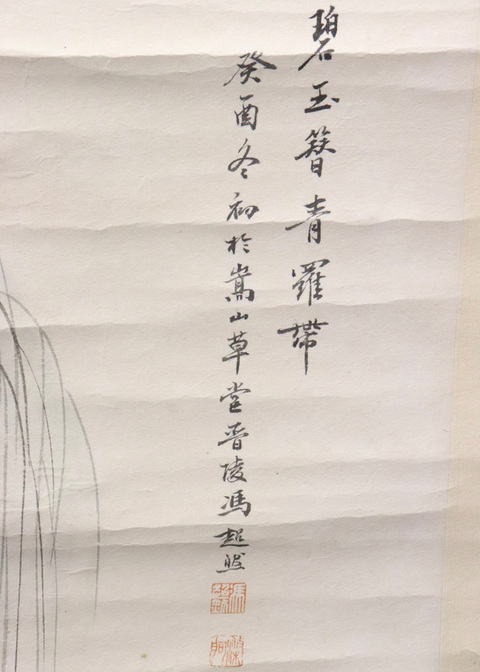 碧玉簪青羅帶
癸酉冬初於嵩山草堂晉陵馮超然